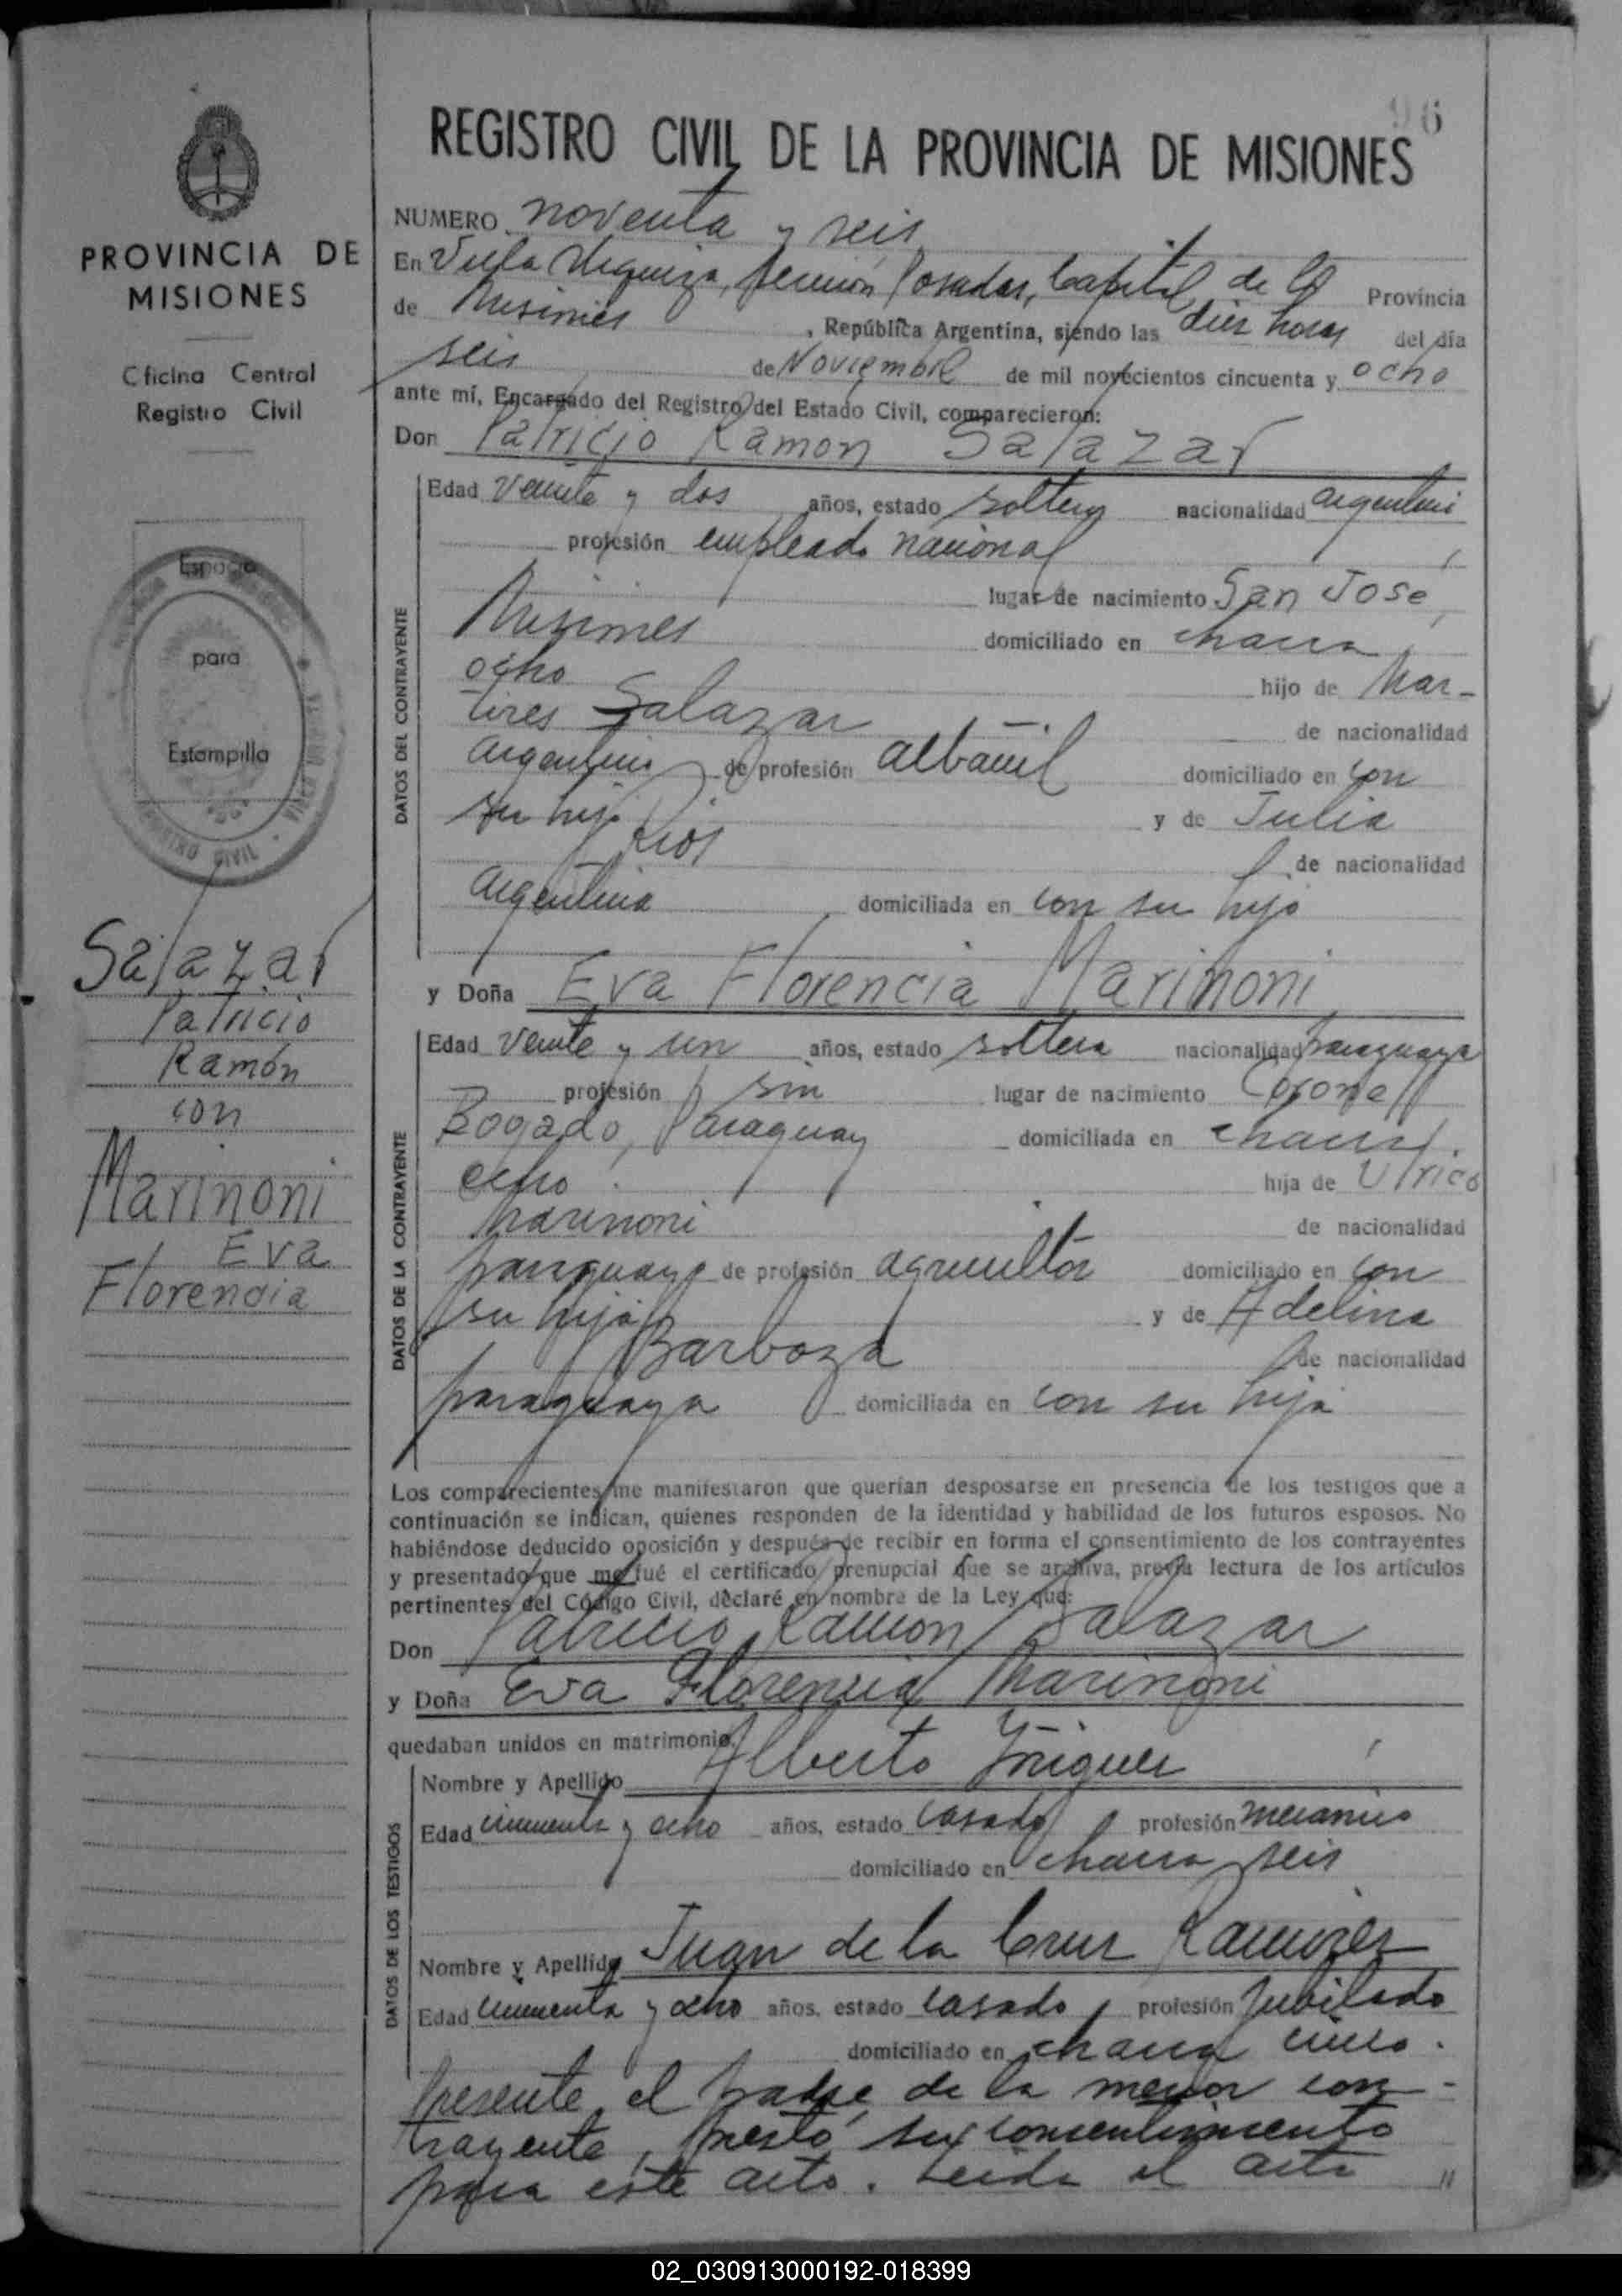 96
REGISTRO CIVIL DE LA PROVINCIA DE MISIONES
PROVINCIA DE
MISIONES
Oficina Central
Registro Civil
Espacio
para
Estampilla
Salazar
Patricio
Ramón
con
Marinoni
Eva
Florencia
NUMERO noventa y seis
En Villa Urquiza, sección Posadas, Capital de la Provincia
de Misiones, República Argentina, siendo las diez horas del día
seis de Noviembre de mil novecientos cincuenta y ocho
ante mí, Encargado del Registro del Estado Civil, comparecieron:
Don Patricio Ramon Salazar
DATOS DEL CONTRAYENTE
Edad veinte y dos años, estado soltero nacionalidad argentino
profesión empleado nacional
lugar de nacimiento San José,
Misiones domiciliado en chacra
ocho hijo de Mar-
tires Salazar de nacionalidad
argentino de profesión albañil domiciliado en con
su hijo y de Julia
Rios de nacionalidad
argentina domiciliada en con su hijo
y Doña Eva Florencia Marinoni
DATOS DE LA CONTRAYENTE
Edad veinte y un años, estado soltera nacionalidad paraguaya
profesión sin lugar de nacimiento Coronel
Bogado, Paraguay domiciliada en chacra
ocho hija de Ulrico
Marinoni de nacionalidad
paraguayo de profesión agricultor domiciliado en con
su hija y de Adelina
Barboza de nacionalidad
paraguaya domiciliada en con su hija
Los comparecientes me manifestaron que querían desposarse en presencia de los testigos que a
continuación se indican, quienes responden de la identidad y habilidad de los futuros esposos. No
habiéndose deducido oposición y después de recibir en forma el consentimiento de los contrayentes
y presentado que me fué el certificado prenupcial que se archiva, previa lectura de los artículos
pertinentes del Código Civil, declaré en nombre de la Ley que:
Don Patricio Ramon Salazar
y Doña Eva Florencia Marinoni
quedaban unidos en matrimonio.
DATOS DE LOS TESTIGOS
Nombre y Apellido Alberto Iñiguez
Edad cincuenta y ocho años, estado casado profesión mecanico
domiciliado en chacra seis
Nombre y Apellido Juan de la Cruz Ramirez
Edad cincuenta y ocho años, estado casado, profesión jubilado
domiciliado en chacra cinco.
Presente el padre de la menor con-
trayente, prestó su consentimiento
para este acto. Leida el acta "
02_030913000192-018399